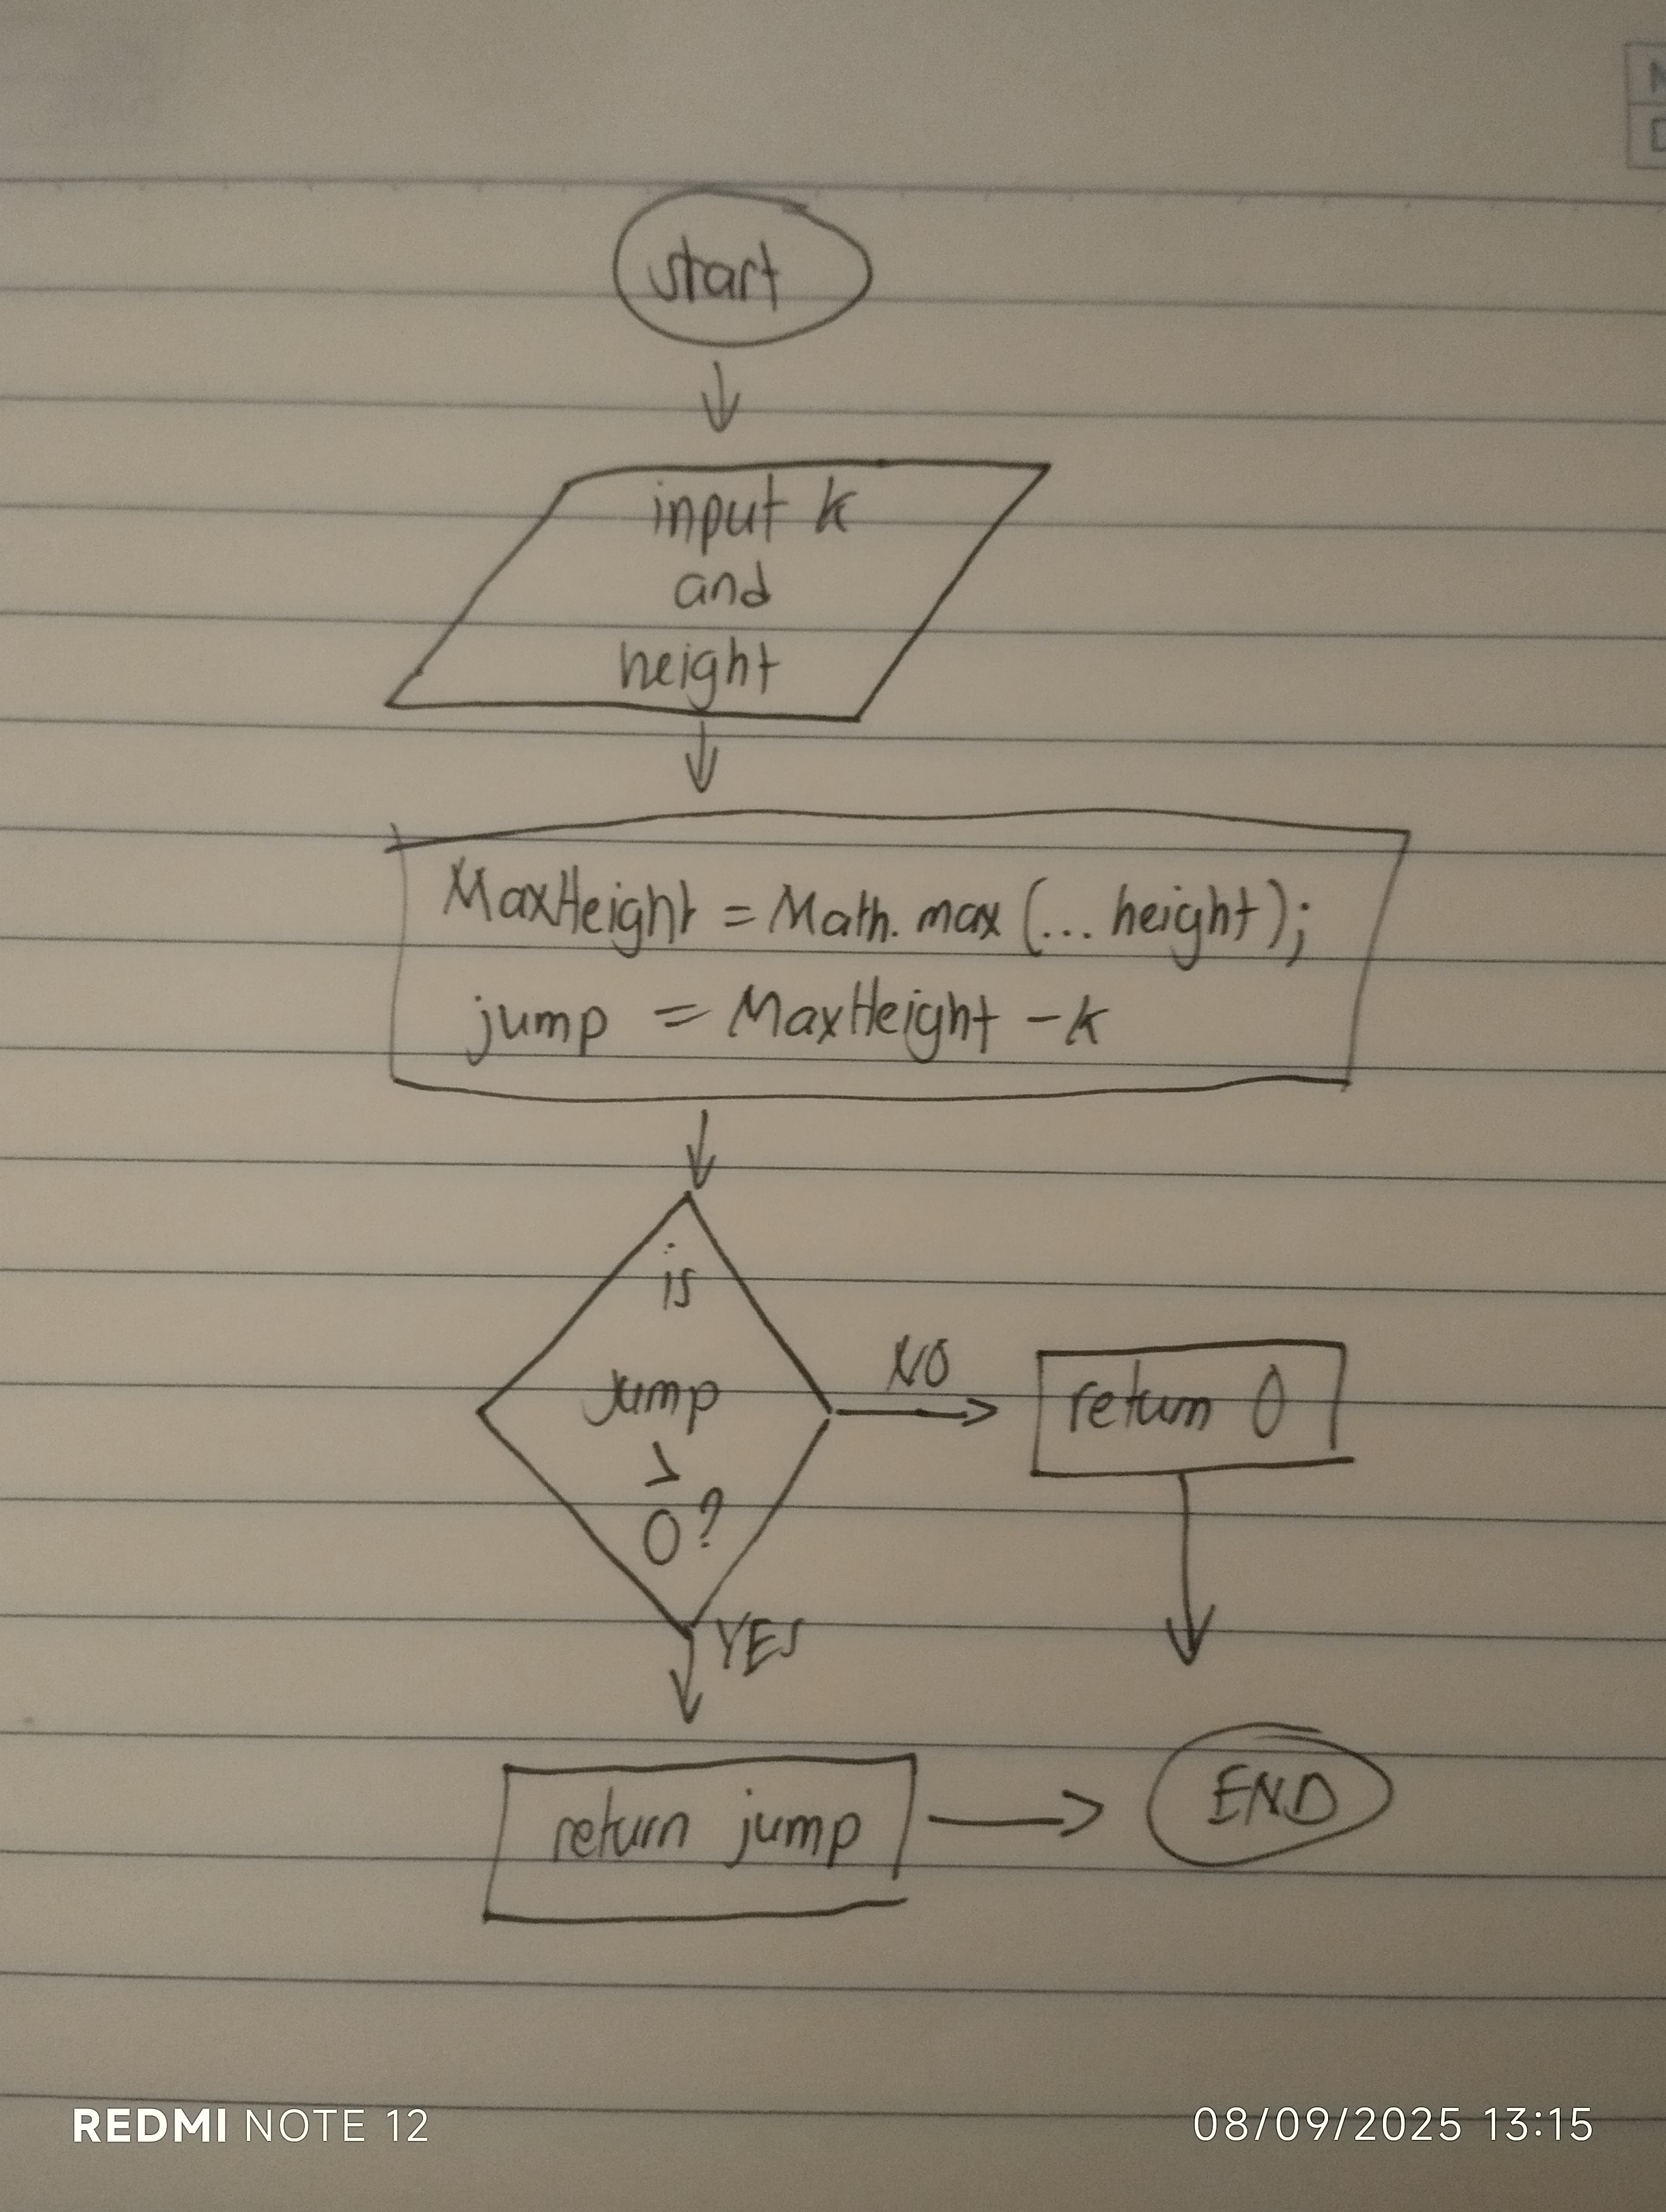 start
input k
and
height
MaxHeight = Math.max (... height);
jump = MaxHeight - k
is
jump
>
0?
NO
return 0
YES
return jump
END
REDMI NOTE 12
08/09/2025 13:15